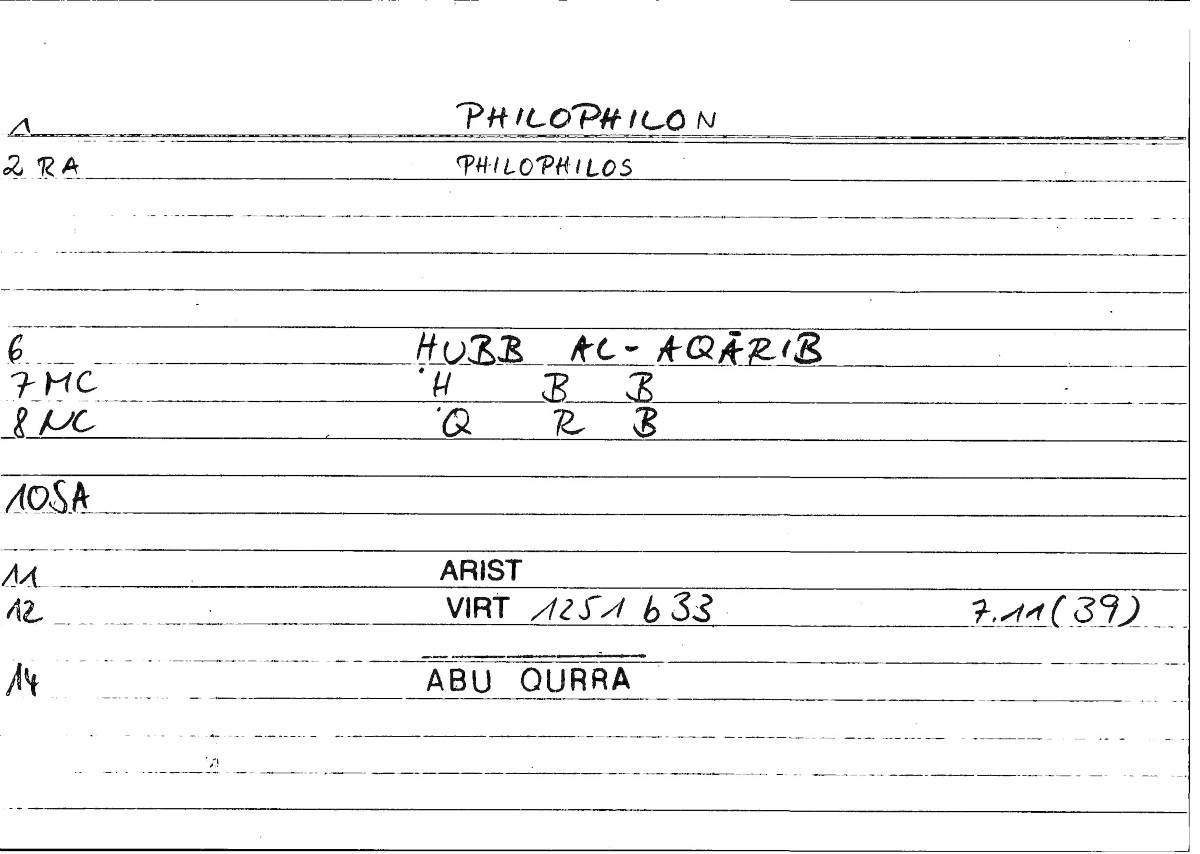 1 PHILOPHILON
2 RA PHILOPHILOS
6 ḤUBB AL-AQĀRIB
7 MC Ḥ B B
8 NC Q R B
10 SA
11 ARIST
12 VIRT 1251 b 33 7.11(39)
14 ABU QURRA